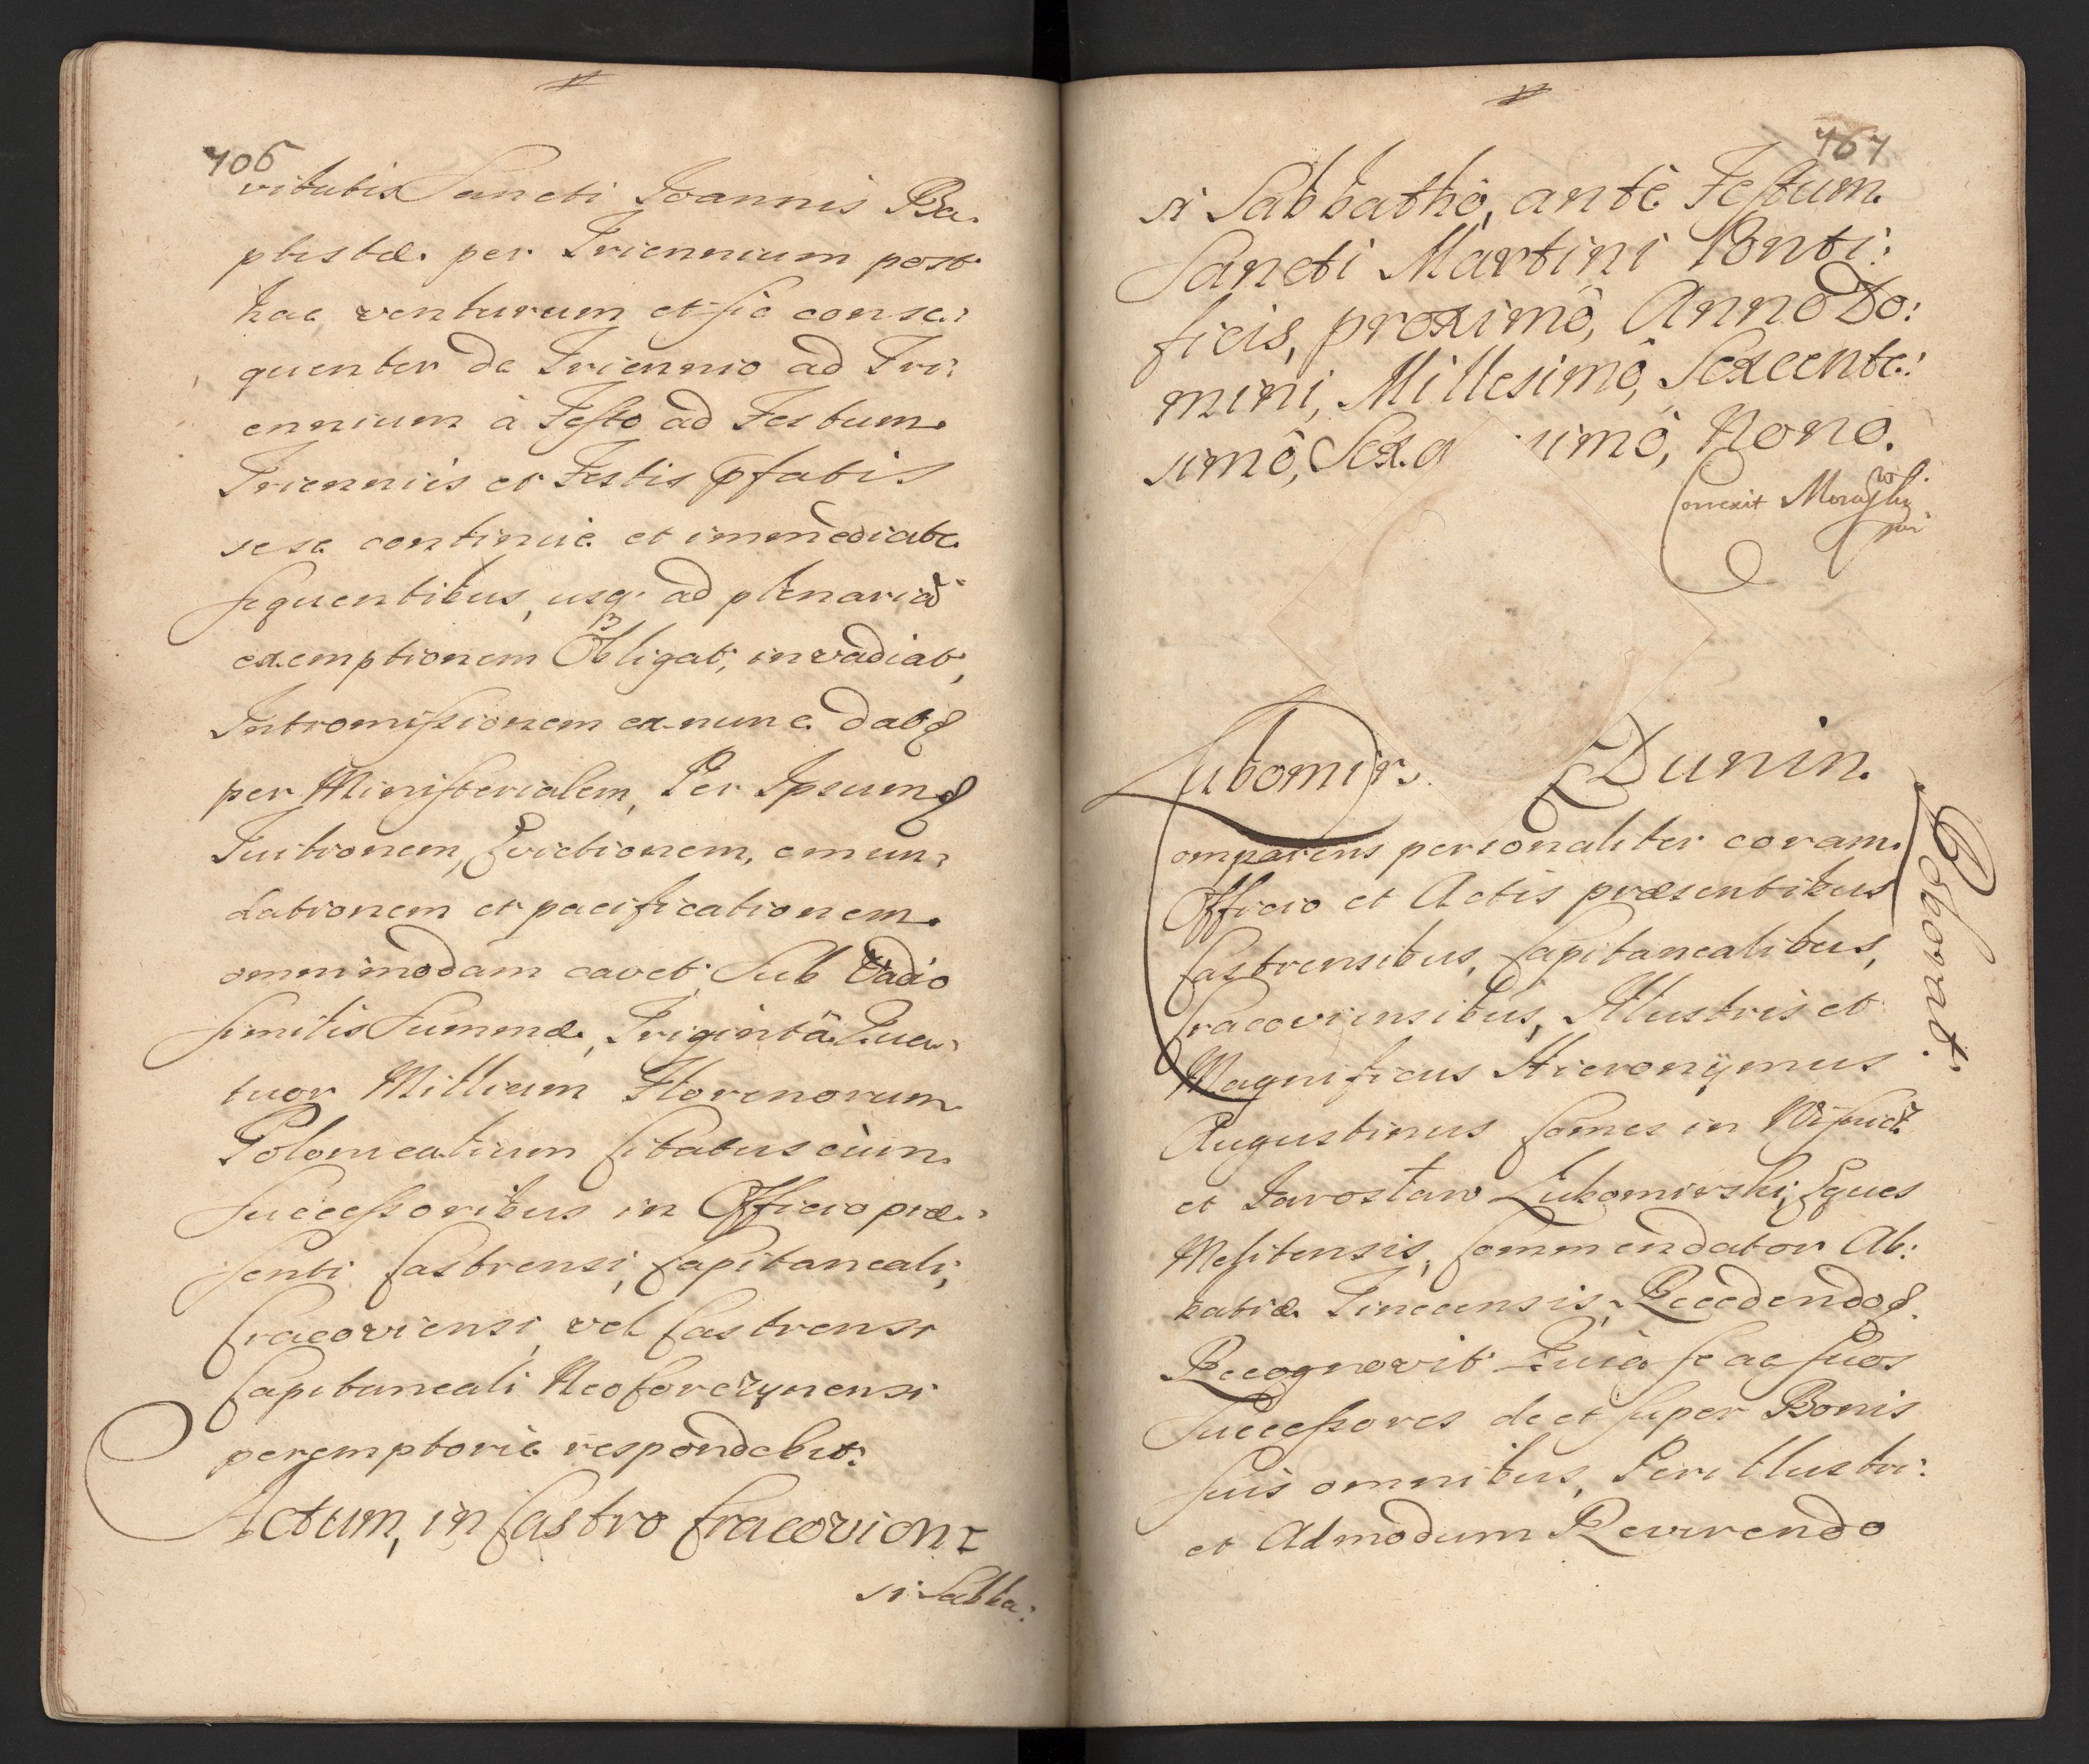 106
vitatis Sancti Joannis Ba-
ptistæ per Triennium post
hac venturum et sic conse:
quenter de Triennio ad Tri:
ennium à Festo ad Festum
Trienniis et Festis pſatis
sese continuè et immediate
sequentibus, usq; ad plenariã
exemptionem Obligat, invadiat,
Intromissionem ex nunc datq
per Ministerialem, Per Ipsumq
Tuitionem, Evictionem, emun:
dationem et pacificationem
ommimodam cavet, Sub Vadio
similis Summæ, Trigintâ Qua:
tuor Millium Florenorum
Polonicalium Citatus cùm
Successoribus in Officio præ:
senti Castrensi, Capitaneali,
Cracoviensi, vel Castrensi
Capitaneali Neoforczynensi
peremptoriè respondebit:
Actum, in Castro Cracovien:
si Sabba:
167
si Sabbathô, antè Festum
Sancti Martini Ponti:
ficis, proximô, Anno Do:
mini, Millesimô, Sexcente:
simô, Sexa simô, Nono.
Correxit
Lubomir: Dunin.
Oborat:
Comparens personaliter coram
Officio et Actis præsentibus
Castrensibus, Capitanealibus,
Cracoviensibus, Illustris et
Magnificus Hieronÿmus
Augustinus Comes in Wisnicz
et Jarosław Lubomirski, Eques
Melitensis, Commendator Ab:
batiæ Tinecensis, Recedendoq
Recognovit Quià se ac suos
Successores de et super Bonis
suis omnibus, Perillustri:
et Admodum Reverendo